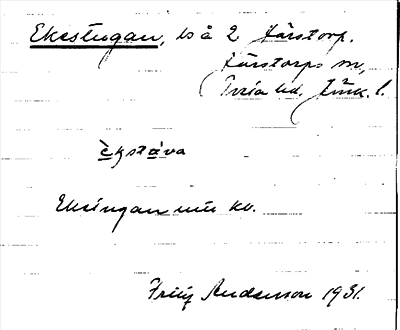 Ekestugan, ls å 2 Järstorp.
Järstorps sn,
Tveta hd. Jönk. l.
èkstáva
Ekstugan mtn kv.
Fritz Anderson 1931.